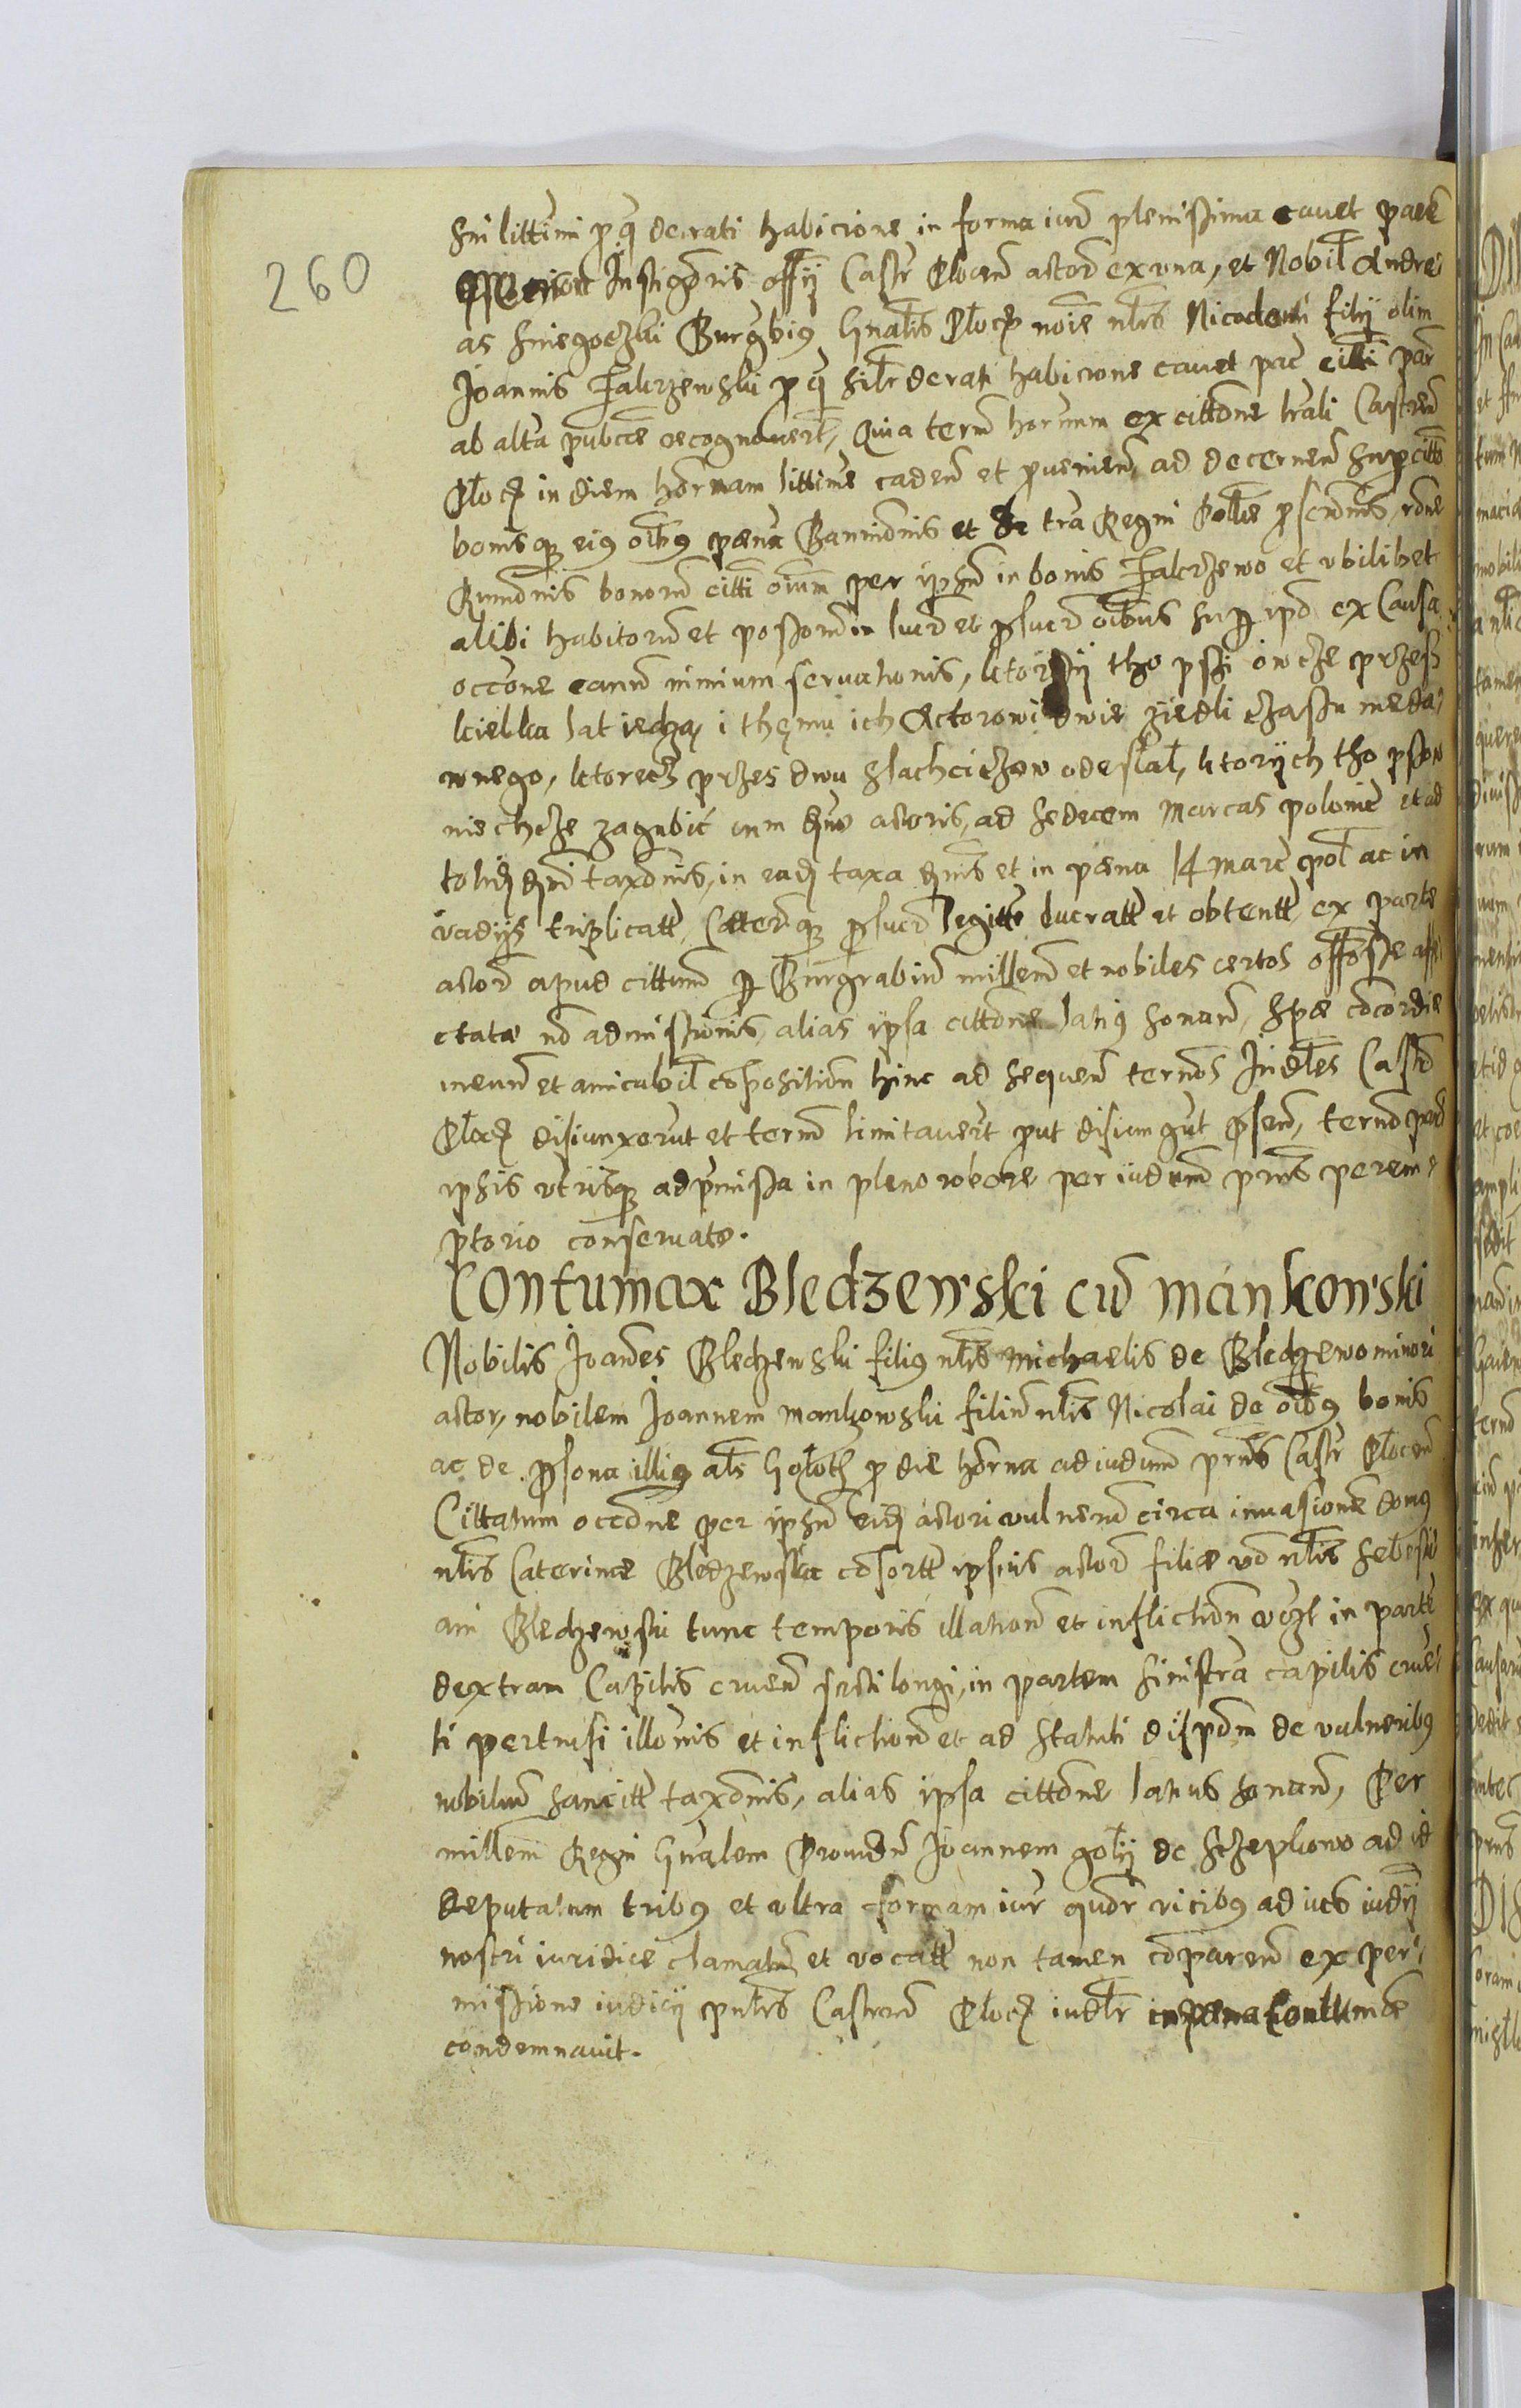 260
sui littimi pro q. decreti habicione in forma iuris plenissima cauet parte
Instigatoris offij Castr Plocen actor ex una, et Nobil Andre
as Sniegoczki Burgbius Gnalis Ploc noie nlis Nicodemi filij olim
Joannis Falczewski pro q silr decreti habicione cauet parte citti par
ab altera publice recognouert, Quia termi horum ex cittone lrali Castren
Ploc in diem hornam littime caden et prouenien ad decernen super citto
bonisq eius oibus pæna Bannionis et de tra Regni Polie prosciõnis, rõne
bonorum citti oium per ipsum in bonis Falczewo et vbilibet
alibi habitorum et possorum in lucro et p lucro oibus super ipso ex Causa
occone canum nimium seruationis, ktorzÿ tho psÿ owcze przesz
kielka lat iedzą i themu ich Actorowi dwie ziedli czassu meda,
wnego, ktorecz przes dwu slachciczow odeslal, ktorÿch tho psow
nie chcze zagubić cum dno actoris, ad sedecem Marcas polonic et ad
totid dni taxõnis, in ead taxa dnis et in pæna 14 marc pol ac in
vadijs triplicatt, Cætterq p lucro legitte lucratt et obtentt ex parte
actor apud cittum per Burgrabium millem et nobiles certos offosse aff
ctatæ no admissionis, alias ipsa cittone latius sonan, Spæ concordiæ
ineun et amicabil composition hinc ad sequen termos Judles Castro
Ploc disiunxerut et termi limitauert prout disiungut presen, termo par
ipsis vtrisq adpmissa in pleno robore per iudcum prnts perem-
ptorio conseruato.
Contumax Bledzewski cum mankowski
Nobilis Joanes Bledzewski filius nlis Michaelis de Bledzewo minori
actor, nobilem Joannem Mankowski filium nlis Nicolai de oibus bonis
ac de persona illius als Goloth pro die horna ad iudcum prnts Castr Plocen
Cittatum occone per ipsum eid actori vulnerum circa inuasionem domus
nlis Caterinæ Bledzewska consortt ipsius actor filiæ vo nlis Sebesti
ani Bledzewski tunc temporis illation et inflictionum in parte
dextram Capitis cruen secti longi, in partem sinistra capitis cruen
ti pertusi illonis et infliction et ad Statuti disponm de vulneribus
nobilium sancitt taxõnis, alias ipsa cittone latius sonan, Per
millem Regni Gnalem Prouidum Joannem golÿ de Sczepkowo ad id
deputatum tribus et vltra formam iur quor vicibus ad ucs iudij
nostri iuridice clamatum et vocatt non tamen comparen ex per-
missione iudicij pntis Castren Ploc iudlr in pæna Contumae
condemnauit.